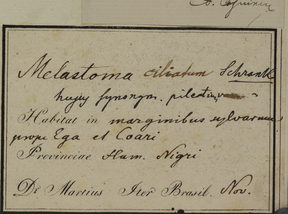 Melastoma ciliatum Schrank
hujus synonym.
Habitat in marginibus sylvarum
prope Ega et Coari
Provinciae Flum. Nigri
De Martius Iter Brasil. Nov.